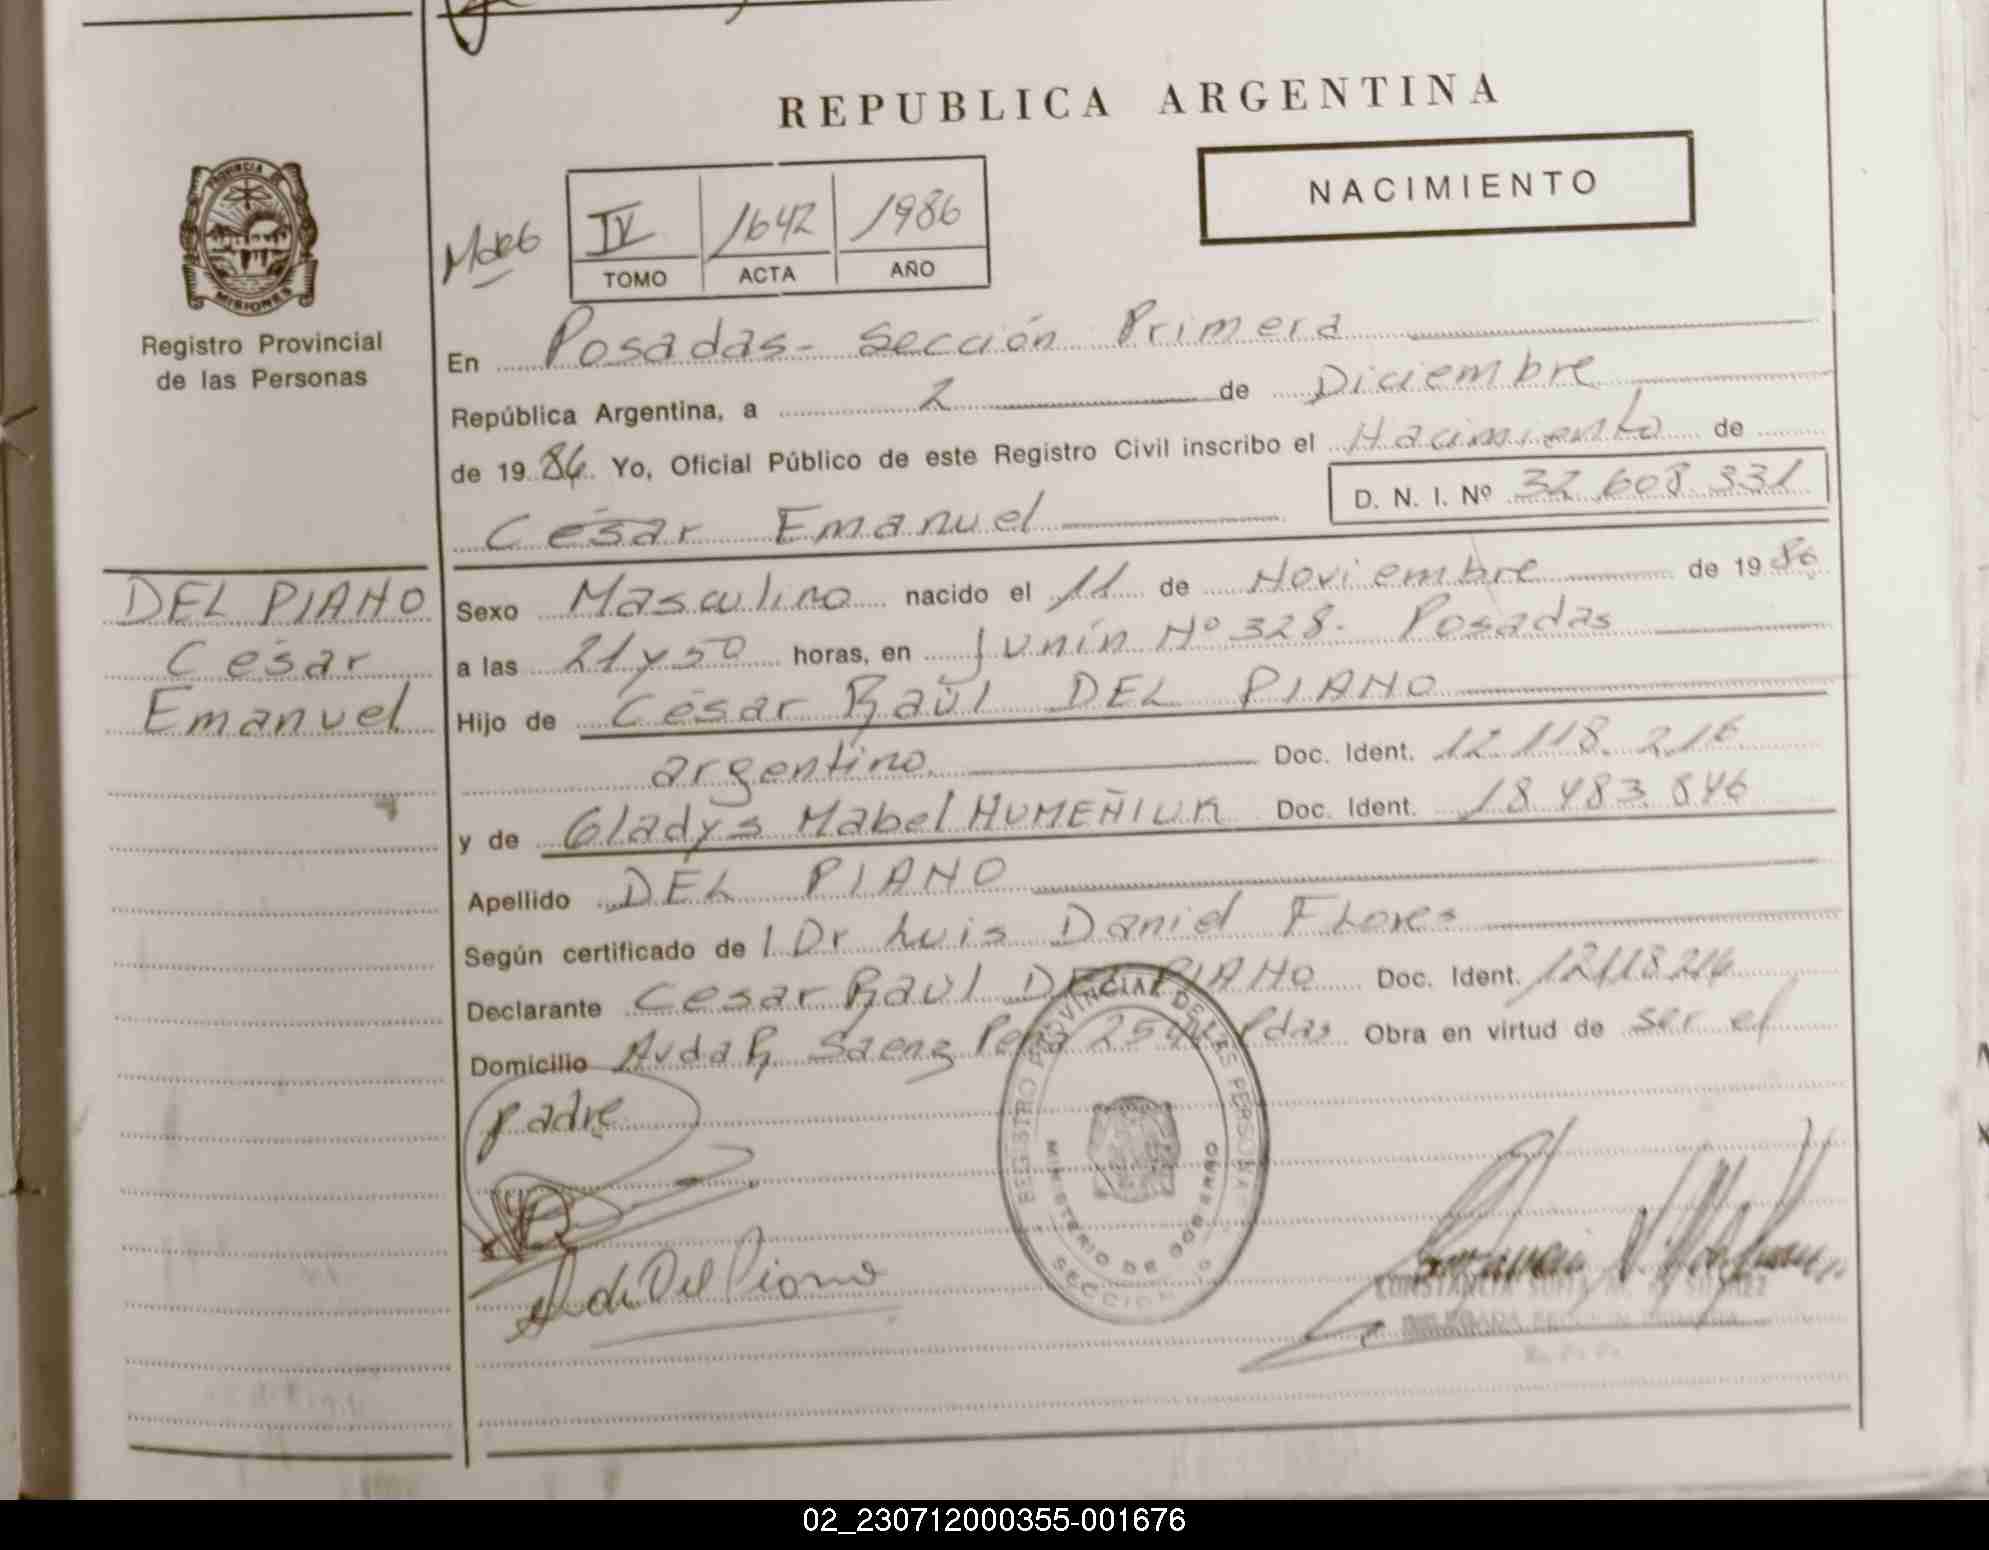 REPUBLICA ARGENTINA
NACIMIENTO
PROVINCIA DE
MISIONES
Registro Provincial
de las Personas
IV 1642 1986
TOMO ACTA AÑO
En Posadas - Sección Primera
República Argentina, a 2 de Diciembre
de 1986 Yo, Oficial Público de este Registro Civil inscribo el Nacimiento de
D. N. I. Nº 32.608.331
César Emanuel
DEL PIANO
César
Emanuel
Sexo Masculino nacido el 11 de Noviembre de 1986
a las 21 y 50 horas, en Junín Nº 328. Posadas
Hijo de César Raúl DEL PIANO
argentino Doc. Ident. 12.118.216
y de Gladys Mabel HUMEÑIUK Doc. Ident. 18.483.846
Apellido DEL PIANO
Según certificado de Dr Luis Daniel Flores
Declarante Cesar Raúl DEL PIANO Doc. Ident. 12118216
Domicilio Avda R. Saenz Peña Pdas Obra en virtud de ser el
padre
REGISTRO PROVINCIAL DE LAS PERSONAS
MINISTERIO DE GOBIERNO
SECCION
Del Piano
CONSTANCIA
DELEGADA SECCION PRIMERA
02_230712000355-001676